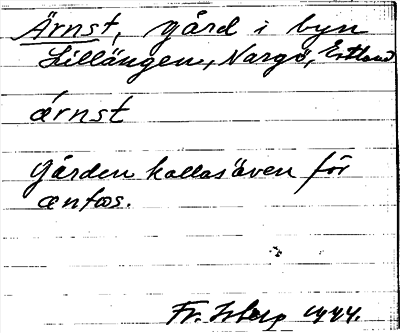 Ärnst, gård i byn
Lillängen, Nargö, Estland
ǽrnst
Gården kallas även för
ænfas.
Fr. Isberg 1944.